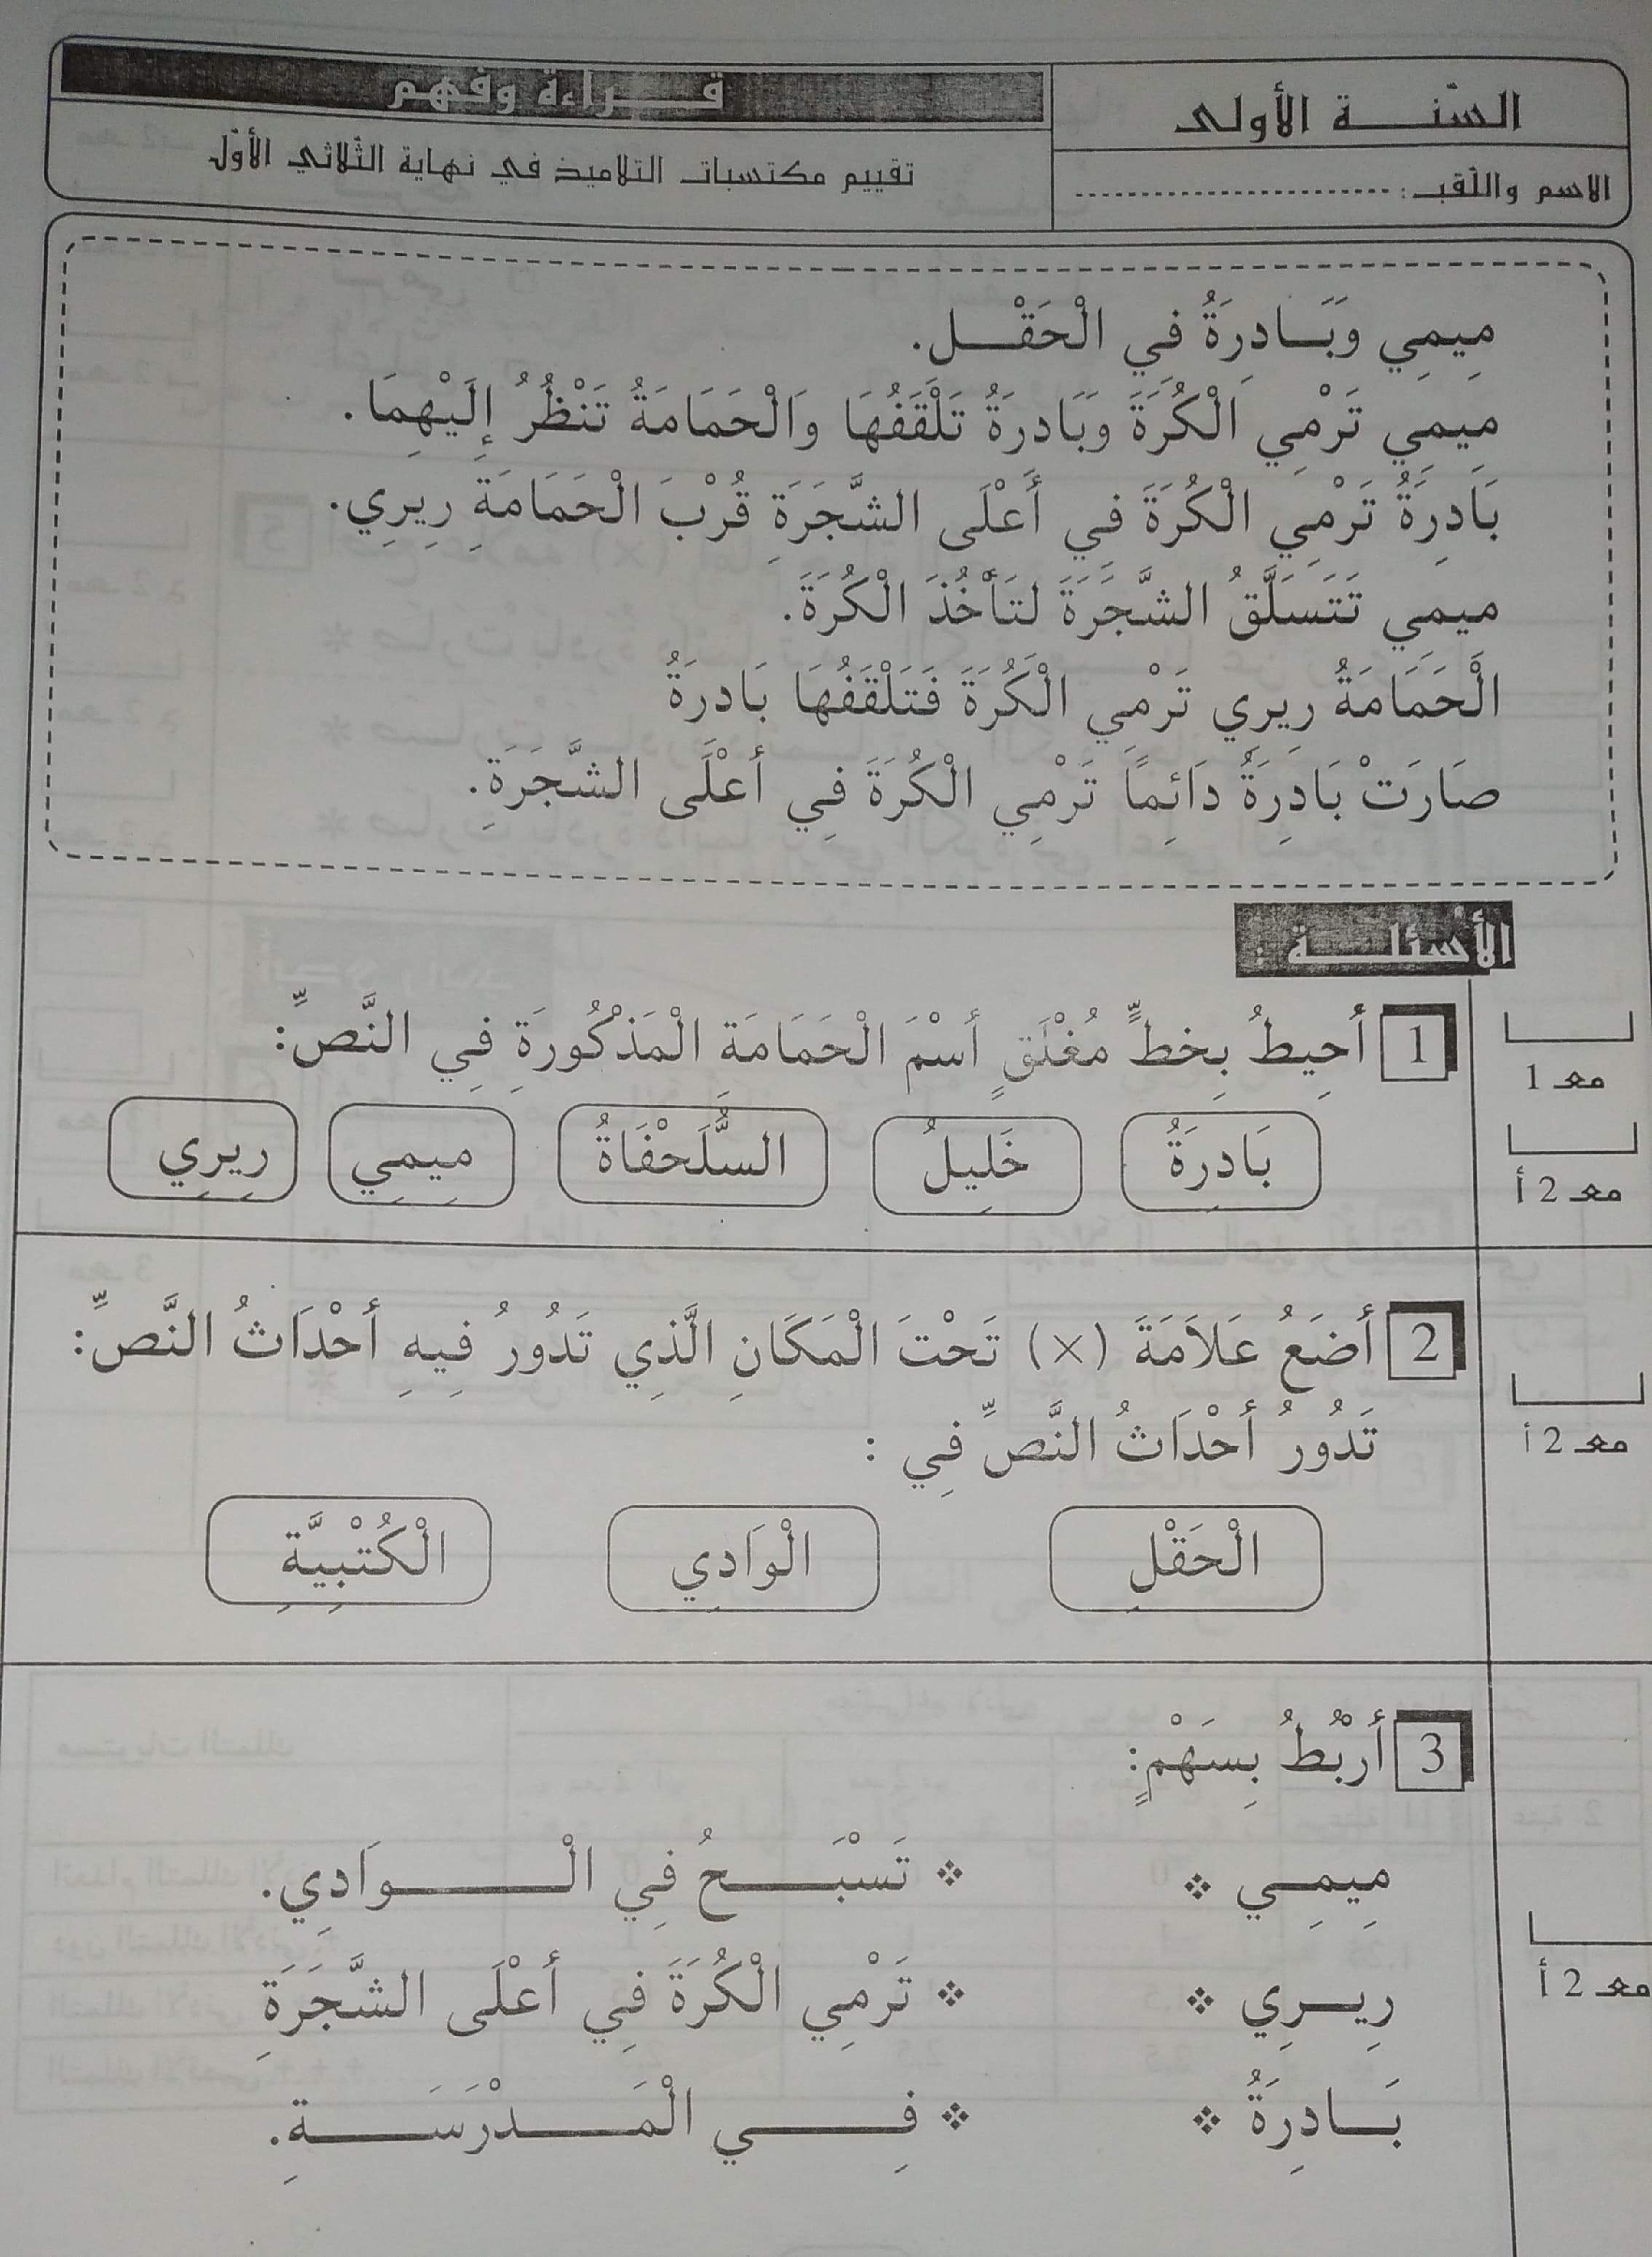 السّنة الأولى
قراءة وفهم
الاسم واللّقب: ............................
تقييم مكتسبات التلاميذ في نهاية الثّلاثي الأوّل
مِيمِي وَبَادِرَةُ فِي الْحَقْل.
مِيمِي تَرْمِي الْكُرَةَ وَبَادِرَةُ تَلْقَفُهَا وَالْحَمَامَةُ تَنْظُرُ إِلَيْهِمَا.
بَادِرَةُ تَرْمِي الْكُرَةَ فِي أَعْلَى الشَّجَرَةِ قُرْبَ الْحَمَامَةِ رِيرِي.
مِيمِي تَتَسَلَّقُ الشَّجَرَةَ لتَأْخُذَ الْكُرَةَ.
الْحَمَامَةُ رِيرِي تَرْمِي الْكُرَةَ فَتَلْقَفُهَا بَادِرَةُ
صَارَتْ بَادِرَةُ دَائِمًا تَرْمِي الْكُرَةَ فِي أَعْلَى الشَّجَرَةِ.
الأسئلة :
1 أُحِيطُ بِخطٍّ مُغْلَقٍ أسْمَ الْحَمَامَة الْمَذْكُورَةِ فِي النَّصِّ:
مع 1
بَادِرَةُ
خَلِيلُ
السُّلَحْفَاةُ
مِيمِي
رِيرِي
مع 2 أ
2 أَضَعُ عَلَامَةَ (×) تَحْتَ الْمَكَانِ الَّذِي تَدُورُ فِيهِ أَحْدَاثُ النَّصِّ:
تَدُورُ أَحْدَاثُ النَّصِّ فِي :
مع 2 أ
الْحَقْلِ
الْوَادِي
الْكُتْبِيَّةِ
3 أَرْبُطُ بِسَهْمٍ:
مِيمِي ❖ ❖ تَسْبَحُ فِي الْوَادِي.
رِيرِي ❖ ❖ تَرْمِي الْكُرَةَ فِي أَعْلَى الشَّجَرَةِ
مع 2 أ
بَادِرَةُ ❖ ❖ فِي الْمَدْرَسَةِ.